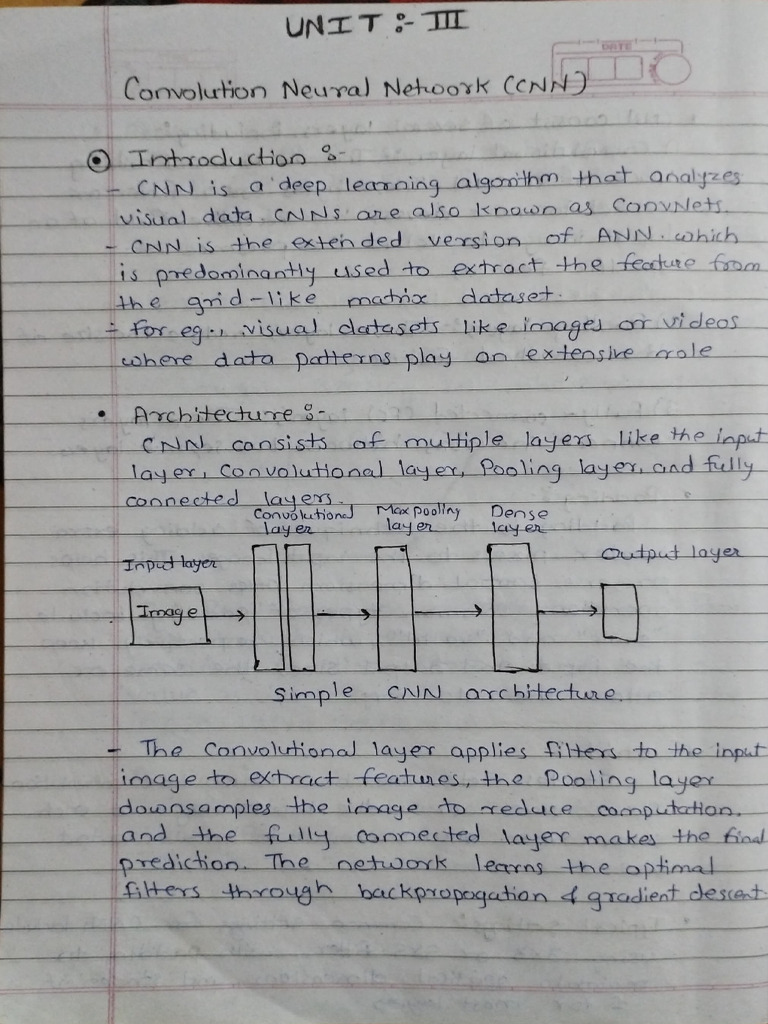 UNIT :- III
DATE
Convolution Neural Network (CNN)
Introduction :-
- CNN is a deep learning algorithm that analyzes
visual data. CNNs are also known as ConvNets.
- CNN is the extended version of ANN. which
is predominantly used to extract the feature from
the grid-like matrix dataset.
- for eg., visual datasets like images or videos
where data patterns play an extensive role
• Architecture :-
CNN consists of multiple layers like the input
layer, Convolutional layer, Pooling layer, and fully
connected layers.
Convolutional Max pooling Dense
layer layer layer
Input layer Output layer
Image
Simple CNN architecture.
- The Convolutional layer applies filters to the input
image to extract features, the Pooling layer
downsamples the image to reduce computation.
and the fully connected layer makes the final
prediction. The network learns the optimal
filters through backpropogation & gradient descent